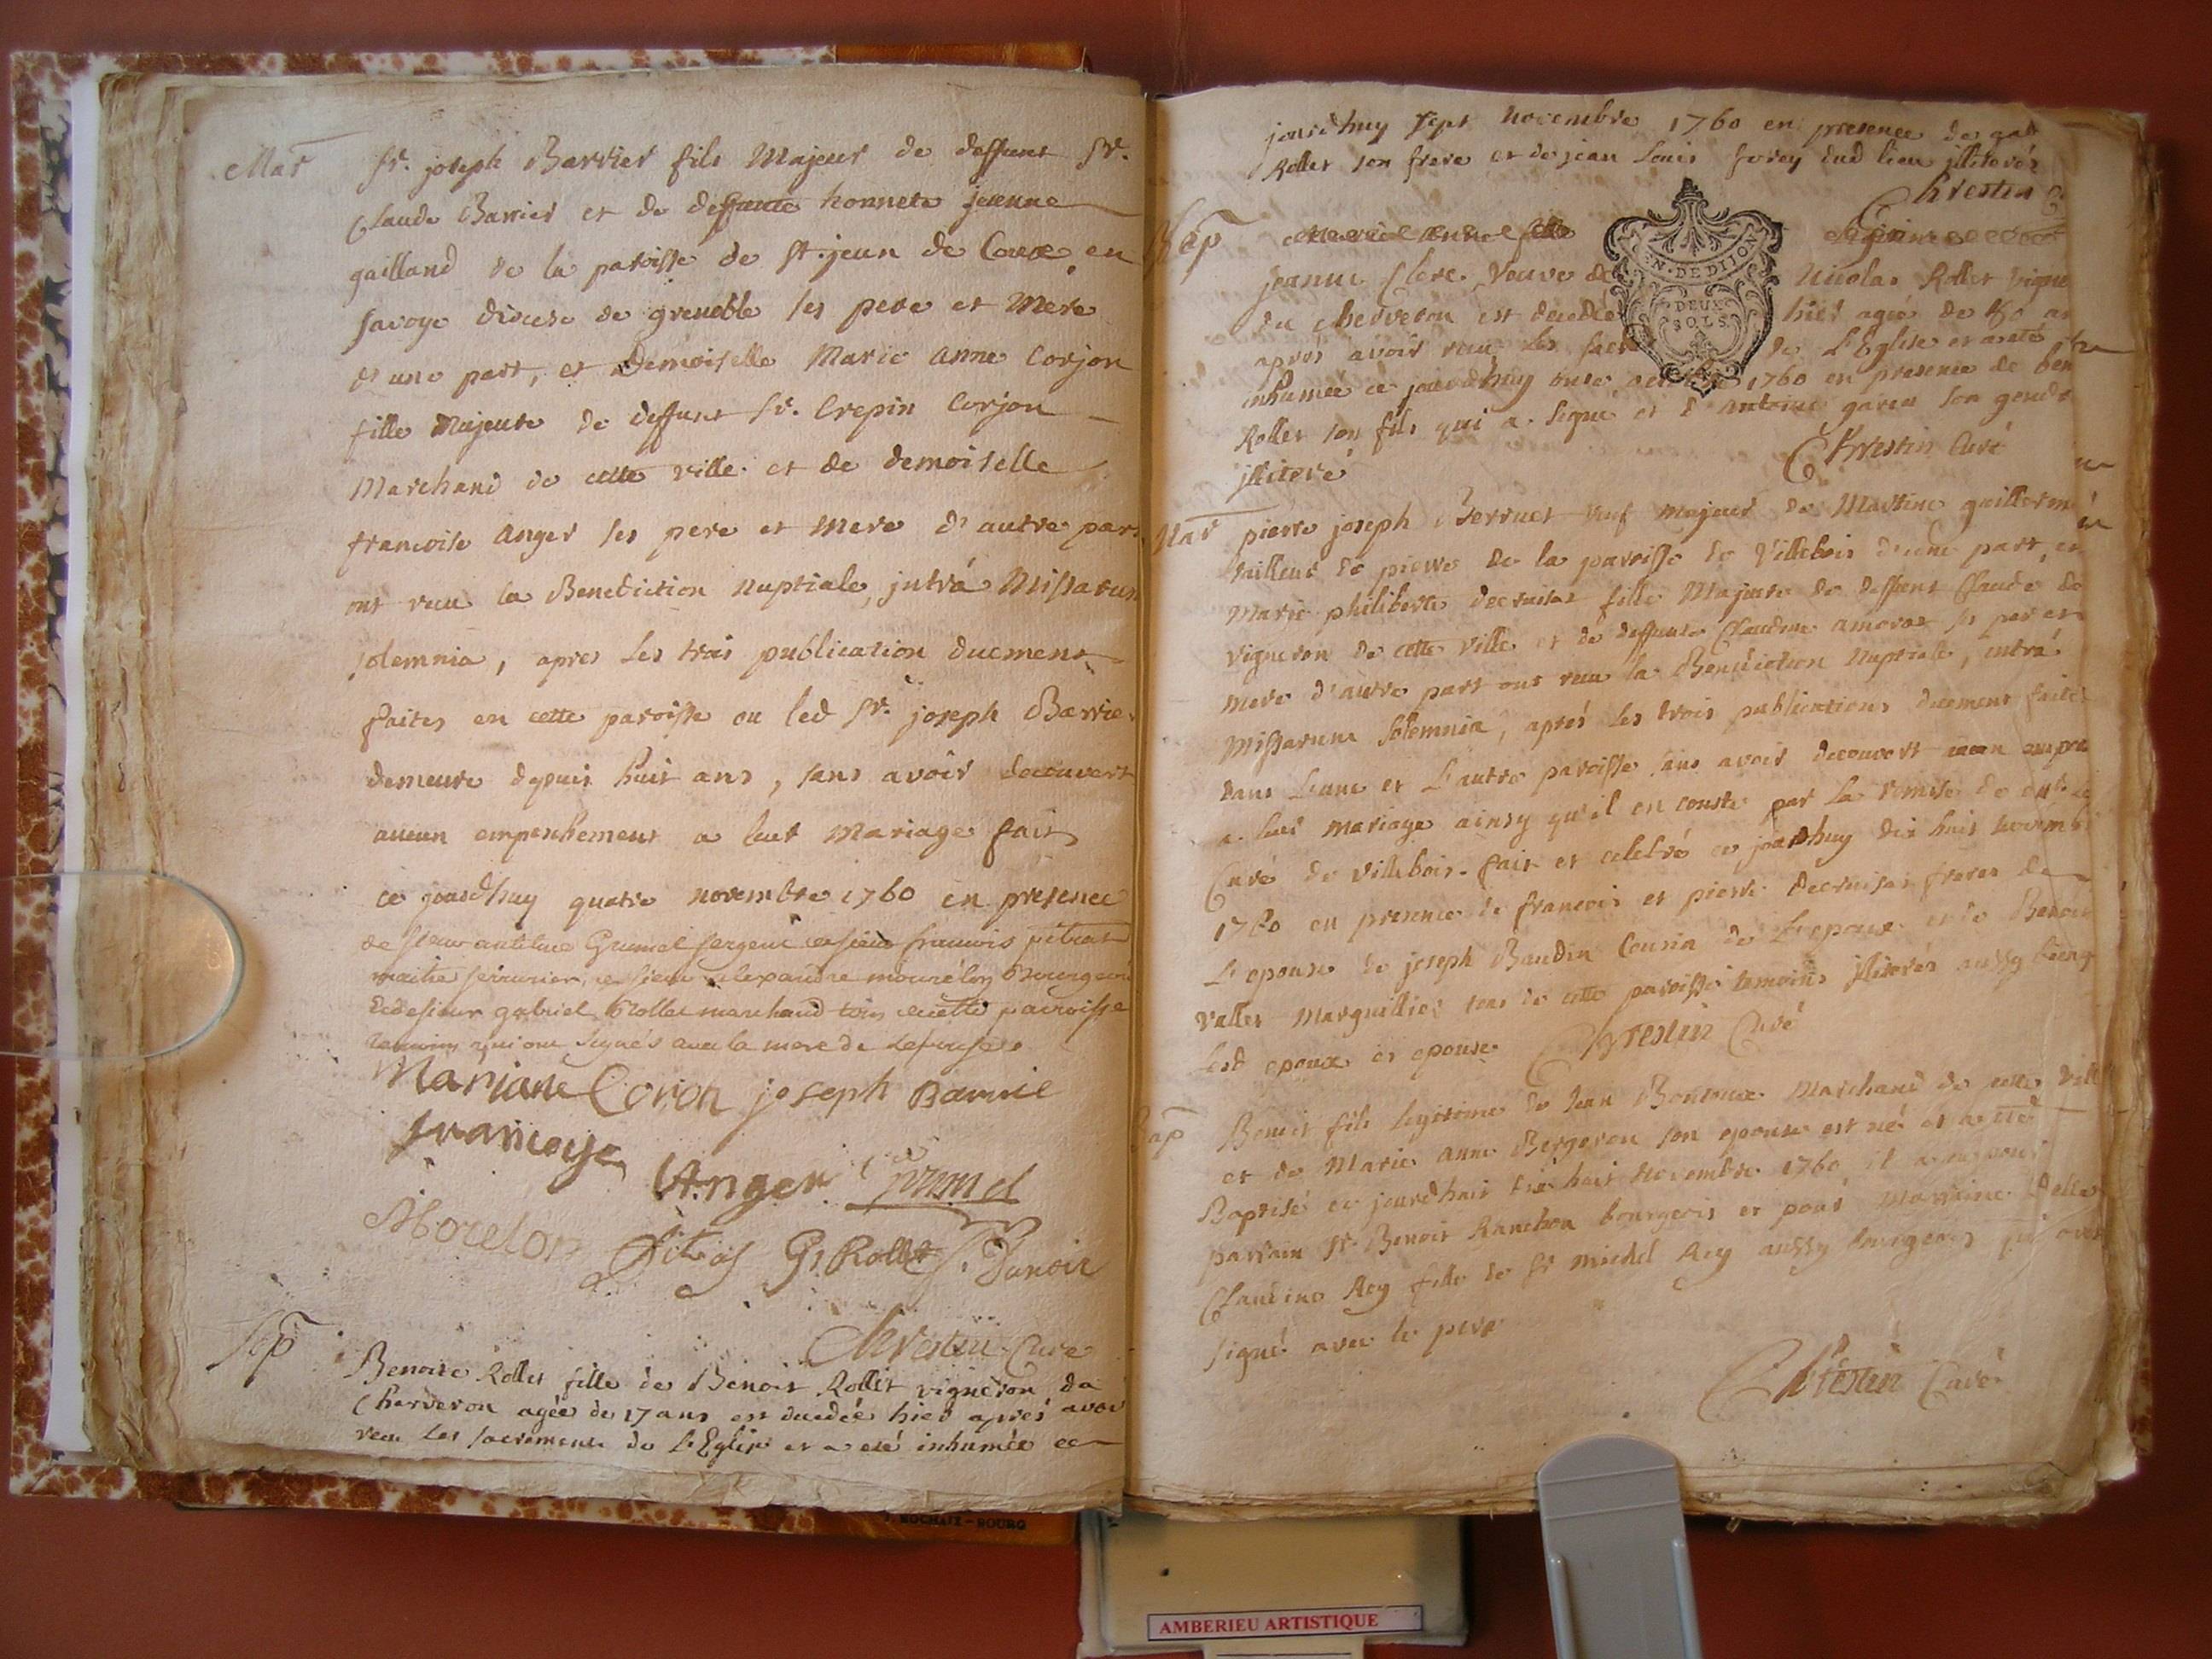 Mar
Sr. joseph Barrier fils Majeur de deffunt Sr.
Claude Barrier et de deffunte honnete jeanne
gailland de la paroisse de St. jean de Couxe en
savoye diocese de grenoble ses pere et Mere
d'une part, et Demoiselle Marie anne Corjon
fille Majeure de deffunt Sr. Crepin Corjon
Marchand de cette ville et de demoiselle
francoise Anger ses pere et mere d'autre part
ont recu la Benediction Nuptiale, jntrá Missarum
solemnia, apres les trois publication duement
faites en cette paroisse ou led Sr. joseph Barrier
demeure depuis huit ans, sans avoir decouvert
aucun empeschement a leur Mariage fait
ce jourdhuy quatre novembre 1760 en presence
de sieur antelme Grumel sergent et sieur francois pitrat
maitre serrurier, et sieur alexandre mourélon Bourgeois
et de sieur gabriel Rollet marchand tous de cette paroisse
temoins qui ont signés avec la mere de Lepouse.
Marjane Corjon joseph Barrié
francoise Anger Grumel
Morelon Pitras G. Rollet Junoit
Chrestin Curé
Sep
Benoite Rollet fille de Benoit Rollet vigneron de
Cherveron agée de 17 ans est decedée hier aprés avoir
recu les sacrements de L'Eglise et a eté inhumée ce
jourdhuy sept novembre 1760 en presence de
Rollet son frere et de jean Louis dud lieu jlliterés
Chrestin
Sep
Jeanne Clerc Veuve de Nicolas Rollet vigne
du Cherveron est decedée hier agée de 80 an
apres avoir recu les sacre de L'Eglise et a eté
inhumée ce jourdhuy onze 1760 en presence de ben
Rollet son fils qui a signé et d'Antoine son gendre
jlliteré
Chrestin Curé
Mar
pierre joseph Berruet veuf majeur de Martine guillerm
tailleur de pierre de la paroisse de Villebois d'une part, et
Marie philiberte decruisat fille Majeure de deffunt Claude de
vigneron de cette ville et de deffunte Claudine amoros ses per et
mere d'autre part ont recu la Benediction Nuptiale, intrá
Missarum solemnia, aprés les trois publications duement faites
dans L'une et L'autre paroisse sans avoir decouvert aucun empe
a leur mariage ainsy qu'il en conste par la remise de
Curé de villebois. fait et celebré ce jourdhuy dix huit novemb
1760 en presence de francois et pierre decruisat freres de
L'epouse de joseph Baudin Cousin de L'epoux et de Benoit
Vallet Marguillier tous de cette paroisse temoins jlliterés aussy bien q
lesd epoux et epouse Chrestin Curé
Bap
Benoit fils legitime de Jean Bontoux Marchand de cette vill
et de Marie anne Bergeron son epouse est né et a eté
Baptisé ce jourdhuit dix huit novembre 1760 il a eu pour
parrain Sr. Benoit Ranchon bourgeois et pour Marraine Delle
Claudine Rey fille de Sr michel Rey aussy bourgeois qui ont
signé avec le pere
Chrestin Curé
N. DE DIJON
DEUX
SOLS
ROCHAIX - BOURG
AMBERIEU ARTISTIQUE